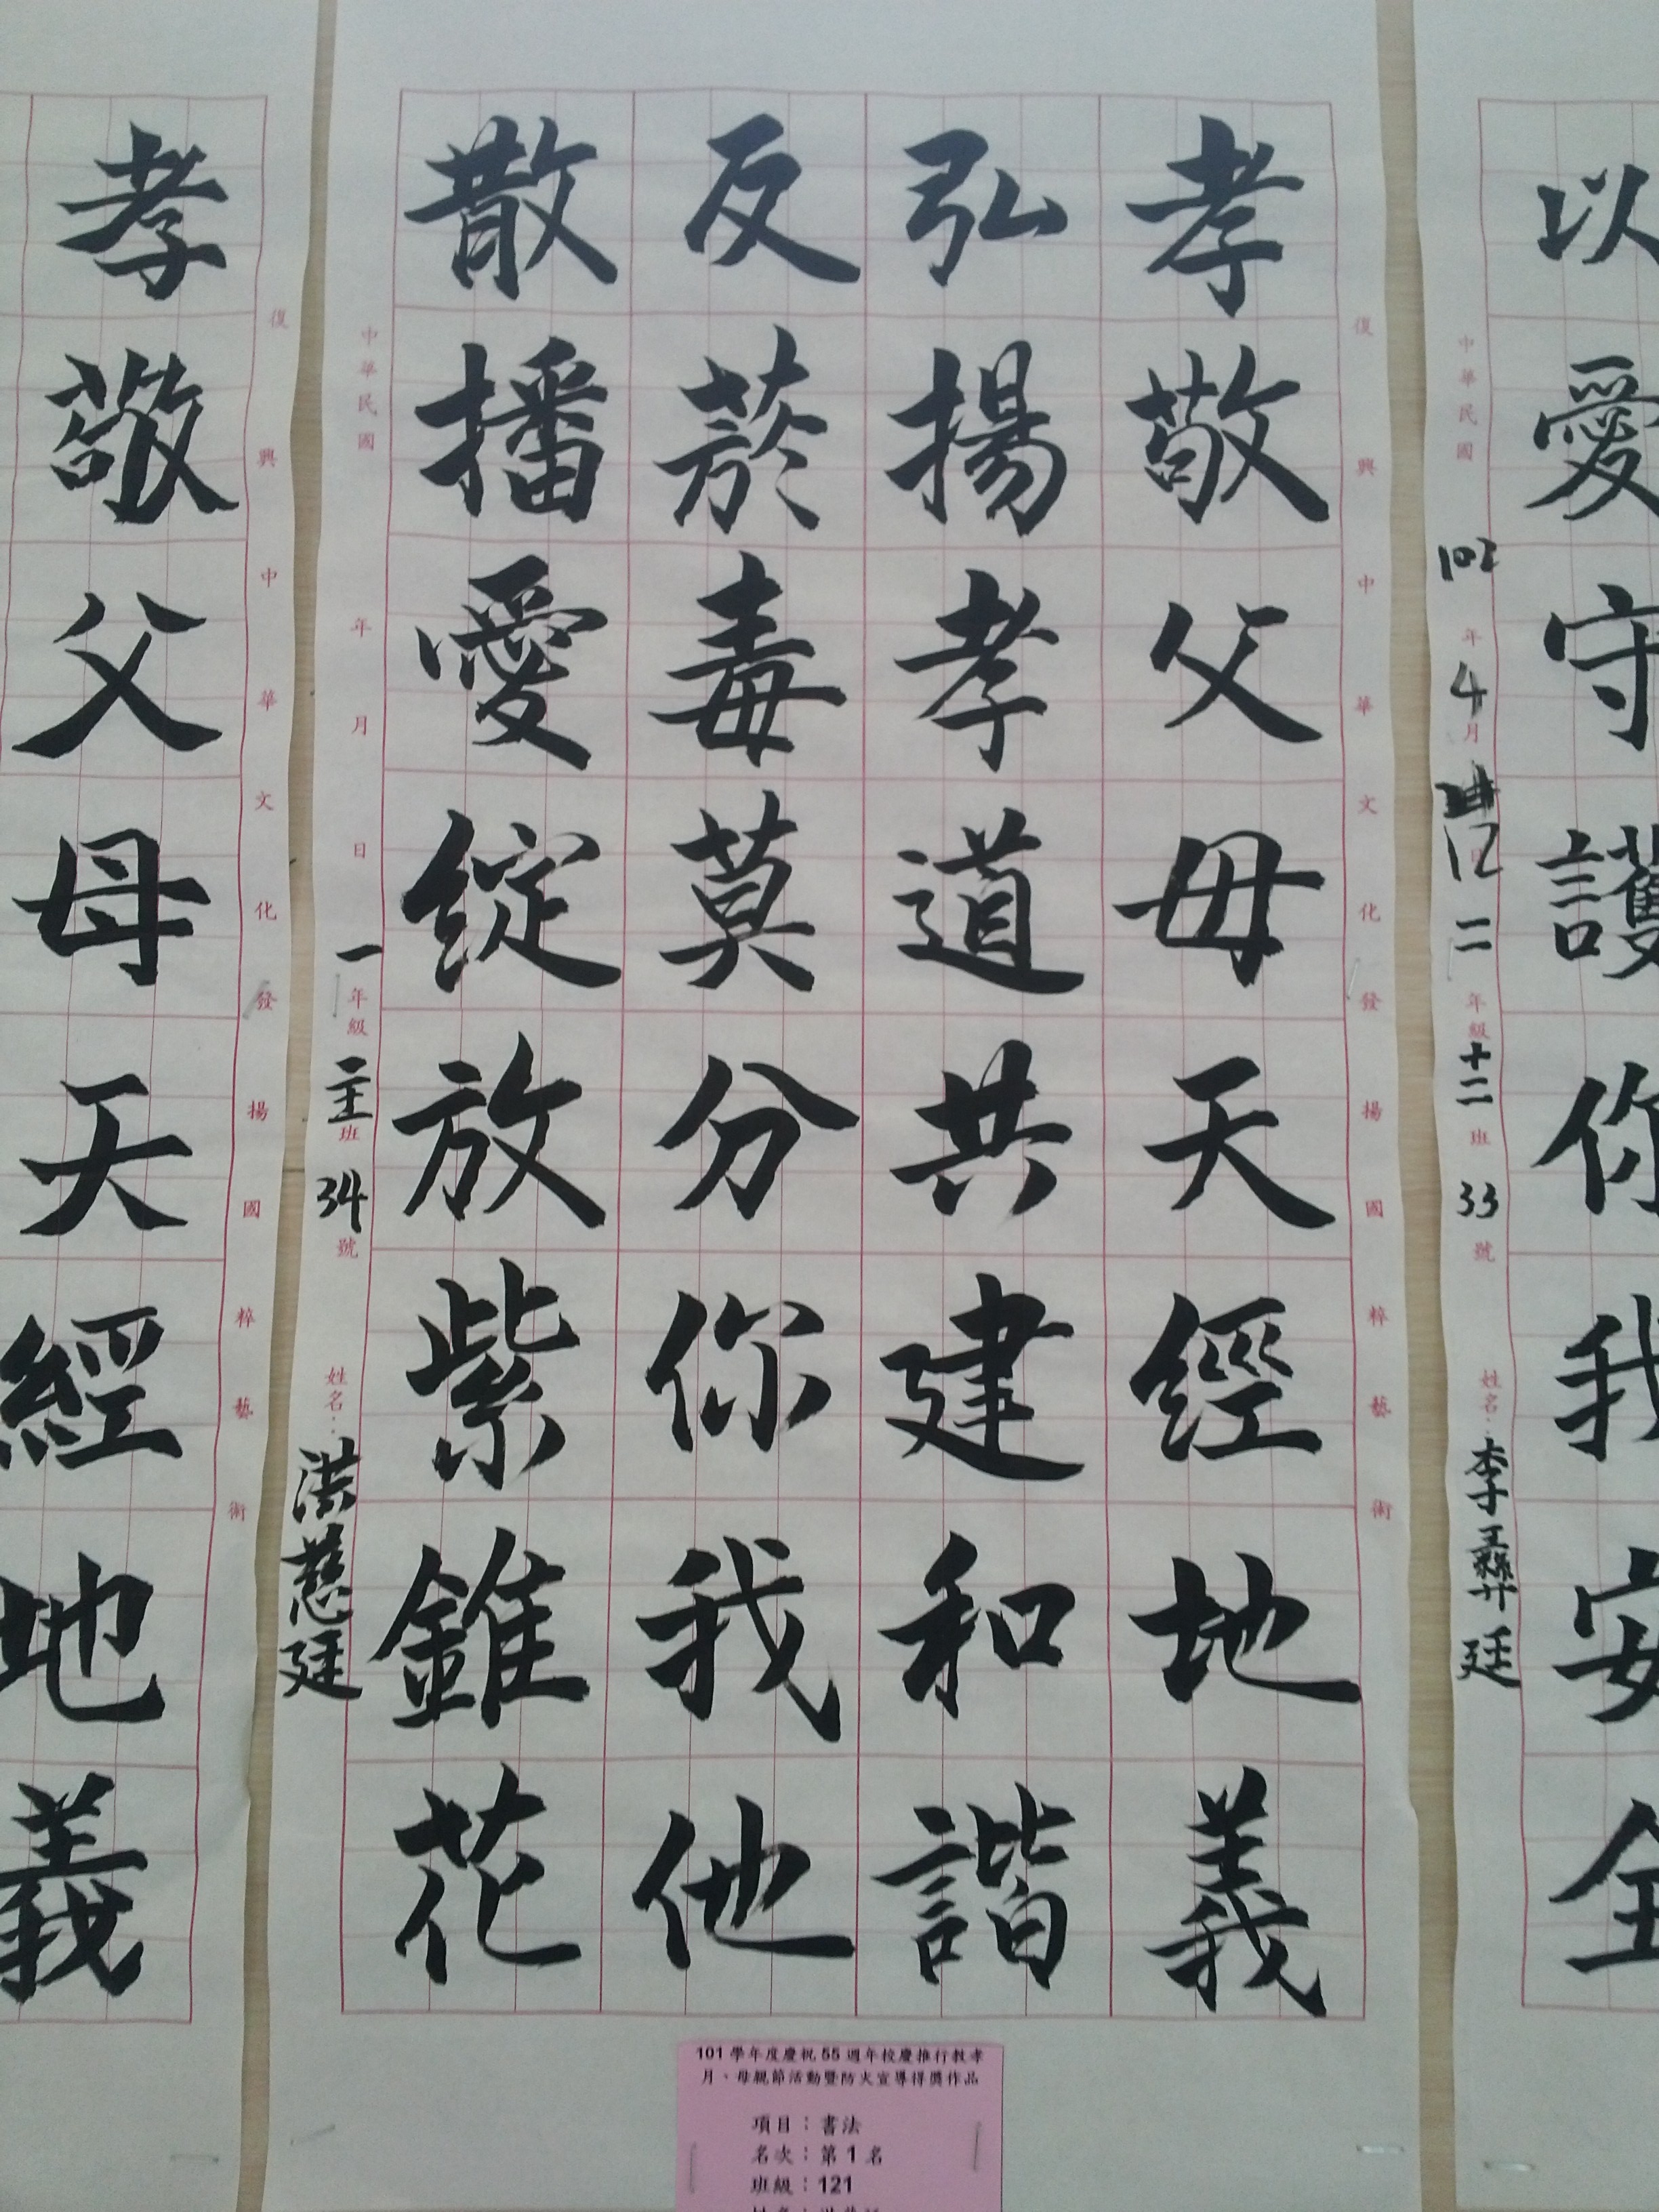 以愛守護你我安全
中華民國 102年4月12日 二年級十二班33號 姓名：李彞廷
復興中華文化發揚國粹藝術
孝敬父母天經地義
弘揚孝道共建和諧
反菸毒莫分你我他
散播愛綻放紫錐花
中華民國 年 月 日 一年級主班34號 姓名：洪慈廷
復興中華文化發揚國粹藝術
孝敬父母天經地義
101學年度慶祝55週年校慶推行教孝
月、母親節活動暨防火宣導得獎作品
項目：書法
名次：第1名
班級：121